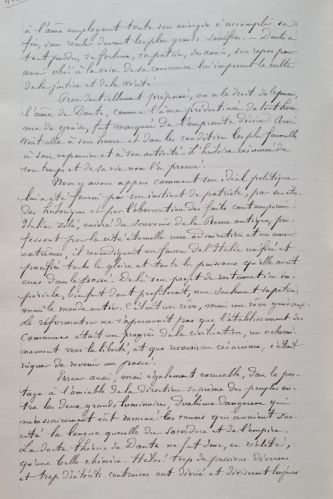 à l'âme employant toute son énergie à accomplir sa
fin, sans reculer devant les plus grands sacrifices. Dante a
tout perdu, sa fortune, sa patrie, ses amis, son repos pour
avoir obéi à la voix de sa conscience lui imposant le culte
de la justice et de la vérité!
Providentiellement préparée, on a le droit de le penser,
l'âme de Dante, comme l'âme prédestinée de tout hom-
me de génie, fut marquée de l'empreinte divine. Aussi
vint-elle à son heure et dans les conditions les plus favorables
à son expansion et à son activité. L'histoire raisonnée de
son temps et de sa vie nous l'a prouvé.
Nous y avons appris comment son idéal politique
lui a été fourni par son instinct de patriote, par ses étu-
des historiques et par l'observation des faits contemporains.
Italien zélé, enivré du souvenir de la Rome antique, pro-
fessant pour la cité éternelle une admiration et un amour
extrêmes, il revendiquait en faveur de l'Italie unifiée et
pacifiée toute la gloire et toute la puissance qu'elle avait
eues dans le passé. De là son projet de restauration im-
périale, bienfait dont profiteraient, non seulement sa patrie
mais le monde entier. C'était un rêve, mais un rêve généreux.
Le réformateur ne s'apercevait pas que l'établissement des
Communes était un progrès de la civilisation, un achemi-
nement vers la liberté, et que recourir au césarisme, c'était
risquer de revenir en arrière!
Erreur aussi, mais également excusable, dans le par-
tage à l'amiable de la direction suprême des peuples en-
tre les deux grands luminaires. Dualisme dangereux qui
nécessairement eût ramené les causes qui avaient sus-
cité la longue querelle du Sacerdoce et de l'empire.
La docte théorie de Dante ne fut donc, en réalité,
qu'une belle chimère. Hélas! trop de passions diverses
et trop d'intérêts contraires ont divisé et diviseront toujours